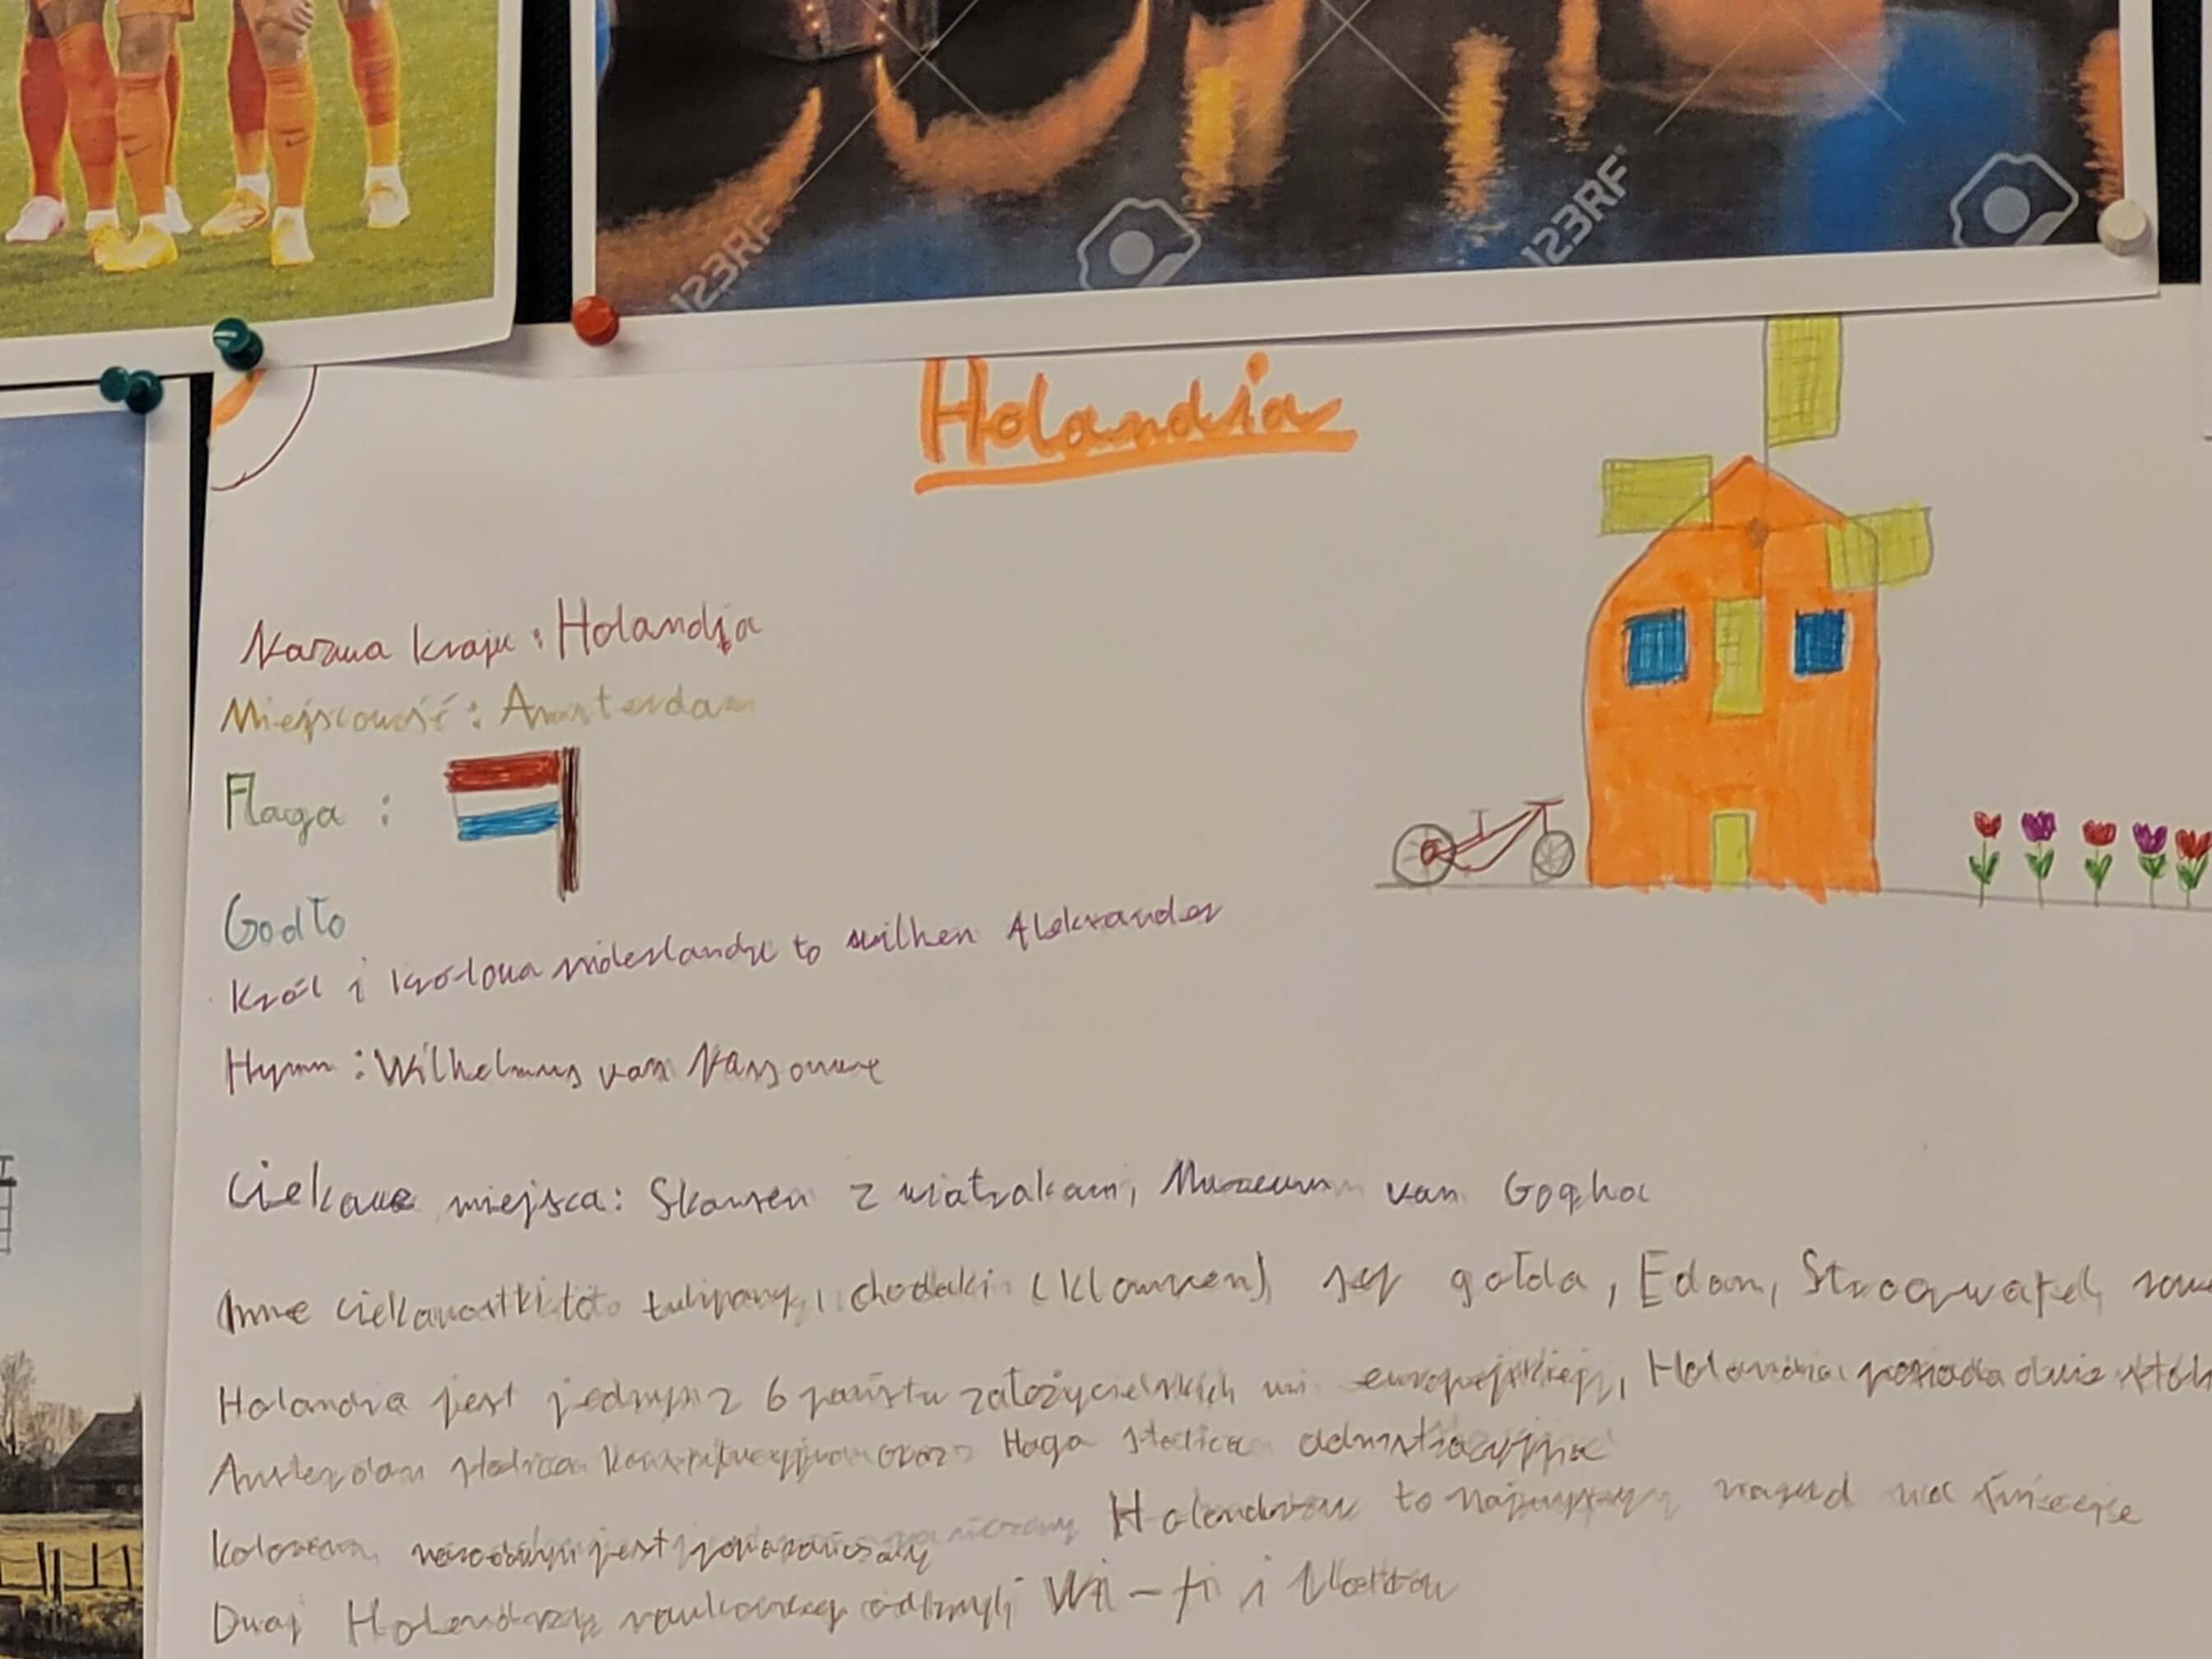 123RF
123RF
Holandia
Nazwa kraju: Holandia
Miejscowość: Amsterdam
Flaga :
Godło
Król i królowa niderlandzc to wilhen Aleksander
Hymn : Wilhelmus van Nassouwe
Ciekawe miejsca: Skansen z wiatrakami, Muzeum van Gogha
Inne ciekawostki to tulipany, chodaki (Klompen), ser gołda, Edam, Stroopwafel,
Holandia jest jednym z 6 państw założycielskich uni europejskiej, Holandia posiada dwie
Amsterdam stolica konstytucyjna oraz Haga stolica
Kolorem narodowym jest pomarańczowy Holendrzy to najwyższy naród na świecie
Dwaj Holenderscy naukowcy odkryli Wi-fi i